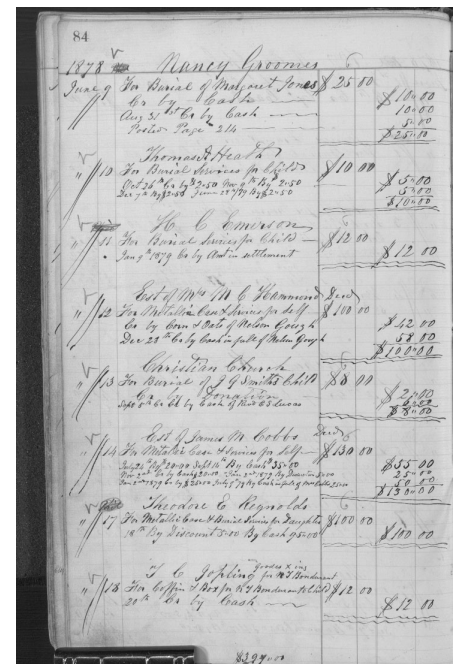 84
1878 Nancy Groomes
June 9 For Burial of Margaret Jones $25 00
Cr by Cash $10 00
Aug 31st Cr by Cash 10 00
Posted Page 214 5 00
$25 00
Thomas Heath
" 10 For Burial Services for Child $10 00
Oct 26th Cr by $2.50 Nov 9th By 2.50 $5 00
Dec 7th By $2.50 By $2.50 5 00
$10 00
H. C. Emerson
" 11 For Burial Services for Child $12 00
Jan 9th 1879 Cr by Amt in settlement $12 00
Est of Mrs M C Hammond Decd
" 12 For Metallic Case & Services for self $100 00
Cr by Corn & Oats of Nelson Gough $42 00
Dec 28th Cr by Cash in full of Nelson Gough 58 00
$100 00
Christian Church
" 13 For Burial of J G Smiths Child $8 00
Cr by Donation $2 00
Sept 5th Cr by Cash of Lucas
$8 00
Est of James M. Cobbs Decd
" 14 For Metalic Case & Services for Self $130 00
20.00 Sept 16th By Cash 35.00 $55 00
by Cash $20.00 1879 By 5.00 25 00
1879 Cr by $25.00 By Cash in full 25.00 50 00
$130 00
Theodore E Reynolds
" 17 For Metallic Case & Burial Services for Daughter $100 00
18th By Discount 5.00 By Cash 95.00 $100 00
T C Jopling for Bondurant
" 18 For Coffin & Box for Bondurants Child $12 00
20th Cr by Cash $12 00
$397.00